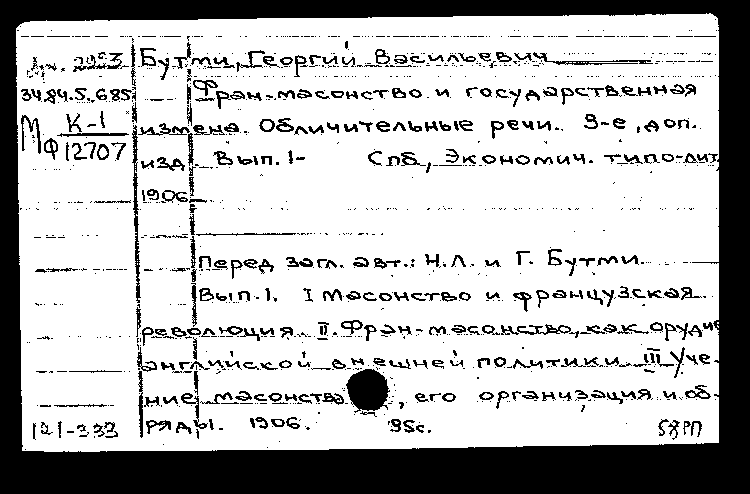 Бутми, Георгий Васильевич
34.84.5.685 Фран-масонство и государственная
МФ К-1 12707 измена. Обличительные речи. 3-е, доп.
изд Вып. 1- Спб, Экономич. типо-лит,
1906
Перед загл. авт.: Н.Л. и Г. Бутми.
Вып. 1. I Масонство и французская
революция. II. Фран-масонство, как орудие
английской внешней политики III Уче-
ние масонства, его организация и об-
121-333 ряды. 1906. 95с.